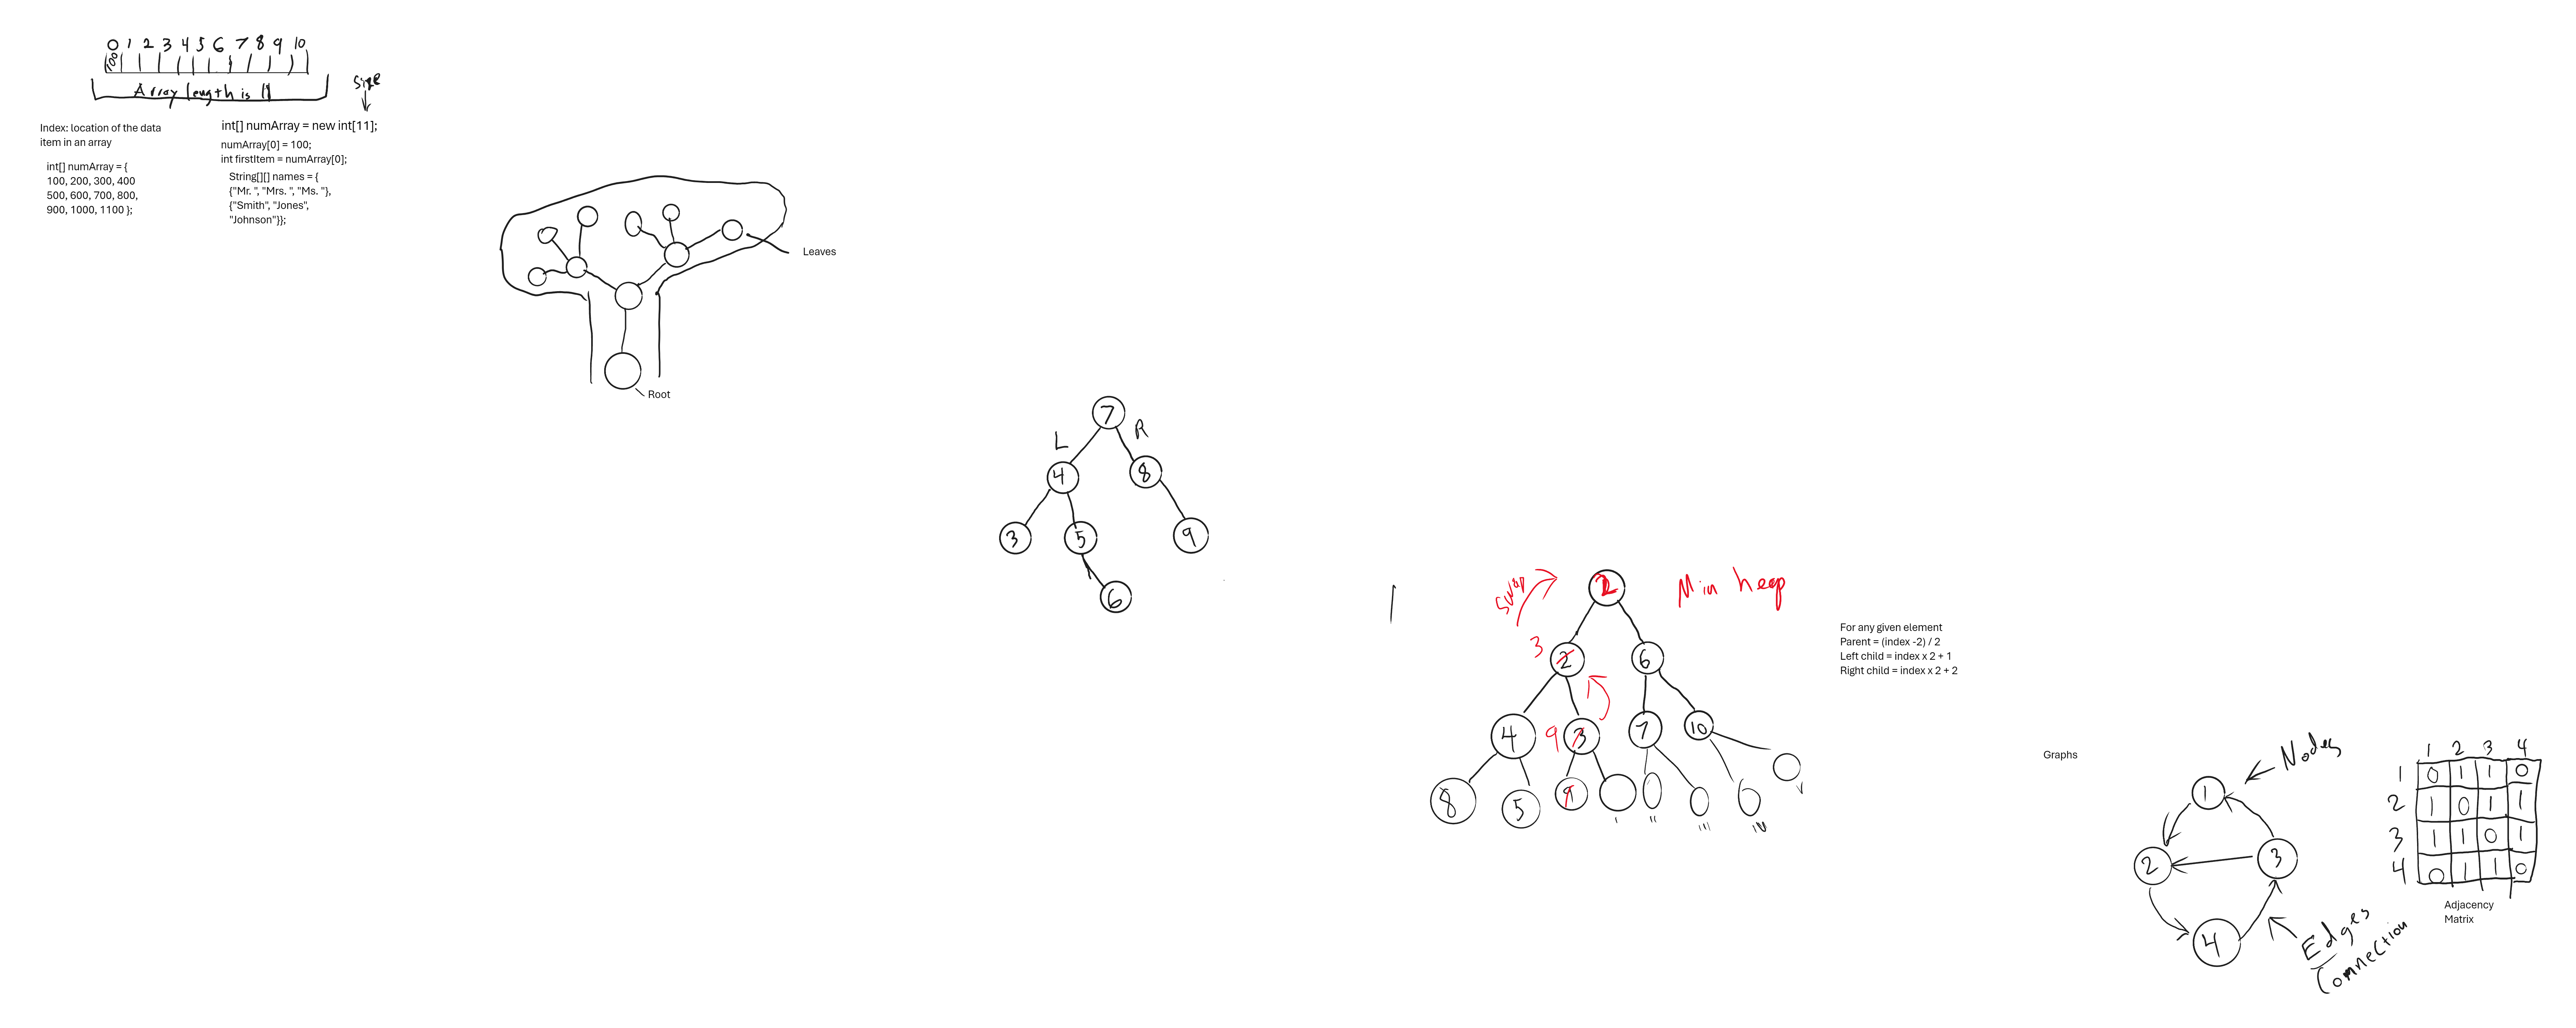 0 1 2 3 4 5 6 7 8 9 10
100
Array length is 11
Size
Index: location of the data
item in an array
int[] numArray = {
100, 200, 300, 400
500, 600, 700, 800,
900, 1000, 1100 };
int[] numArray = new int[11];
numArray[0] = 100;
int firstItem = numArray[0];
String[][] names = {
{"Mr. ", "Mrs. ", "Ms. "},
{"Smith", "Jones",
"Johnson"}};
Leaves
Root
7
L R
4 8
3 5 9
6
swap 2 Min heap
3 2 6
4 9 3 7 10
8 5 9
' '' ''' IV V
For any given element
Parent = (index -2) / 2
Left child = index x 2 + 1
Right child = index x 2 + 2
Graphs
Nodes
1
2 3
4
Edges
Connection
1 2 3 4
1 0 1 1 0
2 1 0 1 1
3 1 1 0 1
4 0 1 1 0
Adjacency
Matrix